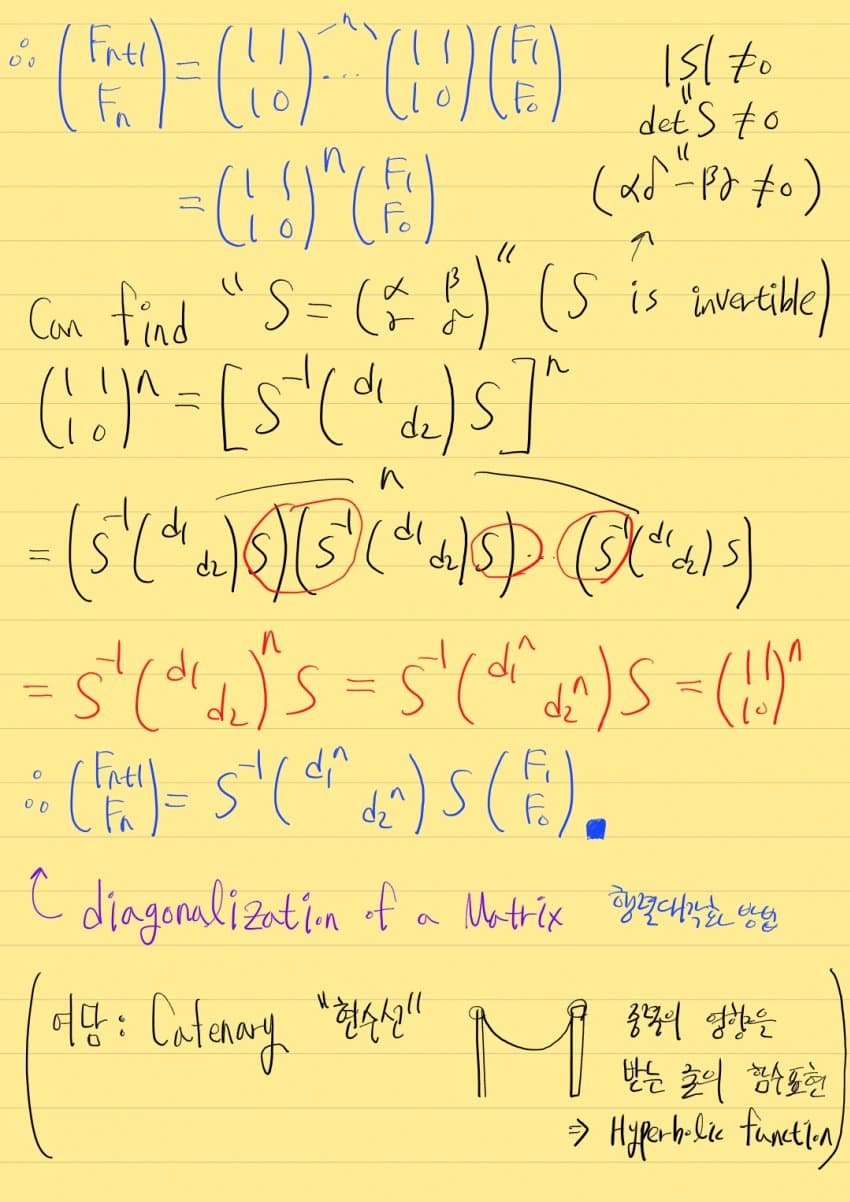 ∴ (F_{n+1} F_n) = (1 1 1 0) ⋯ⁿ (1 1 1 0) (F_1 F_0)
|S| ≠ 0
"
det S ≠ 0
"
= (1 1 1 0)^n (F_1 F_0)
(αδ - βγ ≠ 0)
↑
Can find "S = (α β γ δ)" (S is invertible)
(1 1 1 0)^n = [S^{-1} (d_1 d_2) S]^n
n
= (S^{-1} (d_1 d_2) S) (S^{-1} (d_1 d_2) S) ⋯ (S^{-1} (d_1 d_2) S)
= S^{-1} (d_1 d_2)^n S = S^{-1} (d_1^n d_2^n) S = (1 1 1 0)^n
∴ (F_{n+1} F_n) = S^{-1} (d_1^n d_2^n) S (F_1 F_0) ■
↑ diagonalization of a Matrix 행렬대각화 방법
(여담: Catenary "현수선" 중력의 영향을
받는 줄의 함수표현
⇒ Hyperbolic function)